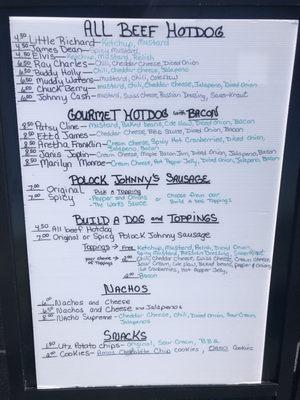 ALL BEEF HOTDOG
4.50 Little Richard - Ketchup, Mustard
4.50 James Dean - Spicy Mustard
4.50 Elvis - Ketchup, Mustard, Relish
6.50 Ray Charles - Chili, Cheddar Cheese, Diced Onion
6.50 Buddy Holly - Chili, Cheddar Cheese, Jalapeno
6.50 Muddy Waters - Mustard, Chili, Coleslaw
6.50 Chuck Berry - Mustard, Chili, Cheddar Cheese, Jalapeno, Diced Onion
6.50 Johnny Cash - Mustard, Swiss Cheese, Russian Dressing, Sauer-Kraut
GOURMET HOTDOG with BACON
8.50 Patsy Cline - Mustard, Baked Beans, Cole Slaw, Diced Onion, Bacon
8.50 Etta James - Cheddar Cheese, BBQ Sauce, Diced Onion, Bacon
8.50 Aretha Franklin - Cream Cheese, Spicy Hot Cranberries, Diced Onion,
Jalapeno, Bacon
8.50 Janis Joplin - Cream Cheese, Maple Bacon Jam, Diced Onion, Jalapeno, Bacon
8.50 Marilyn Monroe - Cream Cheese, Hot Pepper Jelly, Diced Onion, Jalapeno, Bacon
POLOCK JOHNNY'S SAUSAGE
7.00 Original Pick a Topping
7.00 Spicy - Pepper and Onions or Choose from our
- The Works Sauce Build a Dog Toppings
BUILD A DOG AND TOPPINGS
4.50 All beef Hotdog
7.00 Original or Spicy Polock Johnny Sausage
Toppings → Free Ketchup, Mustard, Relish, Diced Onion,
Spicy Mustard, Russian Dressing, Sauerkraut
your choice of toppings Chili, Cheddar Cheese, Swiss Cheese, Cream Cheese,
Sour Cream, Cole Slaw, Baked Beans, Pepper & Onions
Hot Cranberries, Hot Pepper Jelly
2.00 Bacon
NACHOS
6.00 Nachos and Cheese
6.50 Nachos and Cheese and Jalapenos
8.00 Nacho Supreme - Cheddar Cheese, Chili, Diced Onion, Sour Cream
Jalapenos
SNACKS
Utz Potato Chips - Original, Sour Cream, BBQ
Cookies - Famous Chocolate Chip Cookies, Oreo Cookies